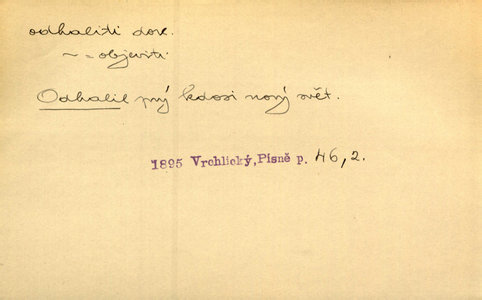 odhaliti dok.
~ = objeviti.
Odhalil prý kdosi nový svět.
1895 Vrchlický, Písně p. 46, 2.